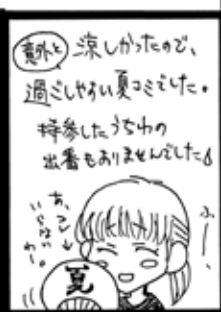 意外と涼しかったので、
過ごしやすい夏コミでした。
持参したうちわの
出番もありませんでした
ふーっ
あ、コレ
いらない
わー。
夏